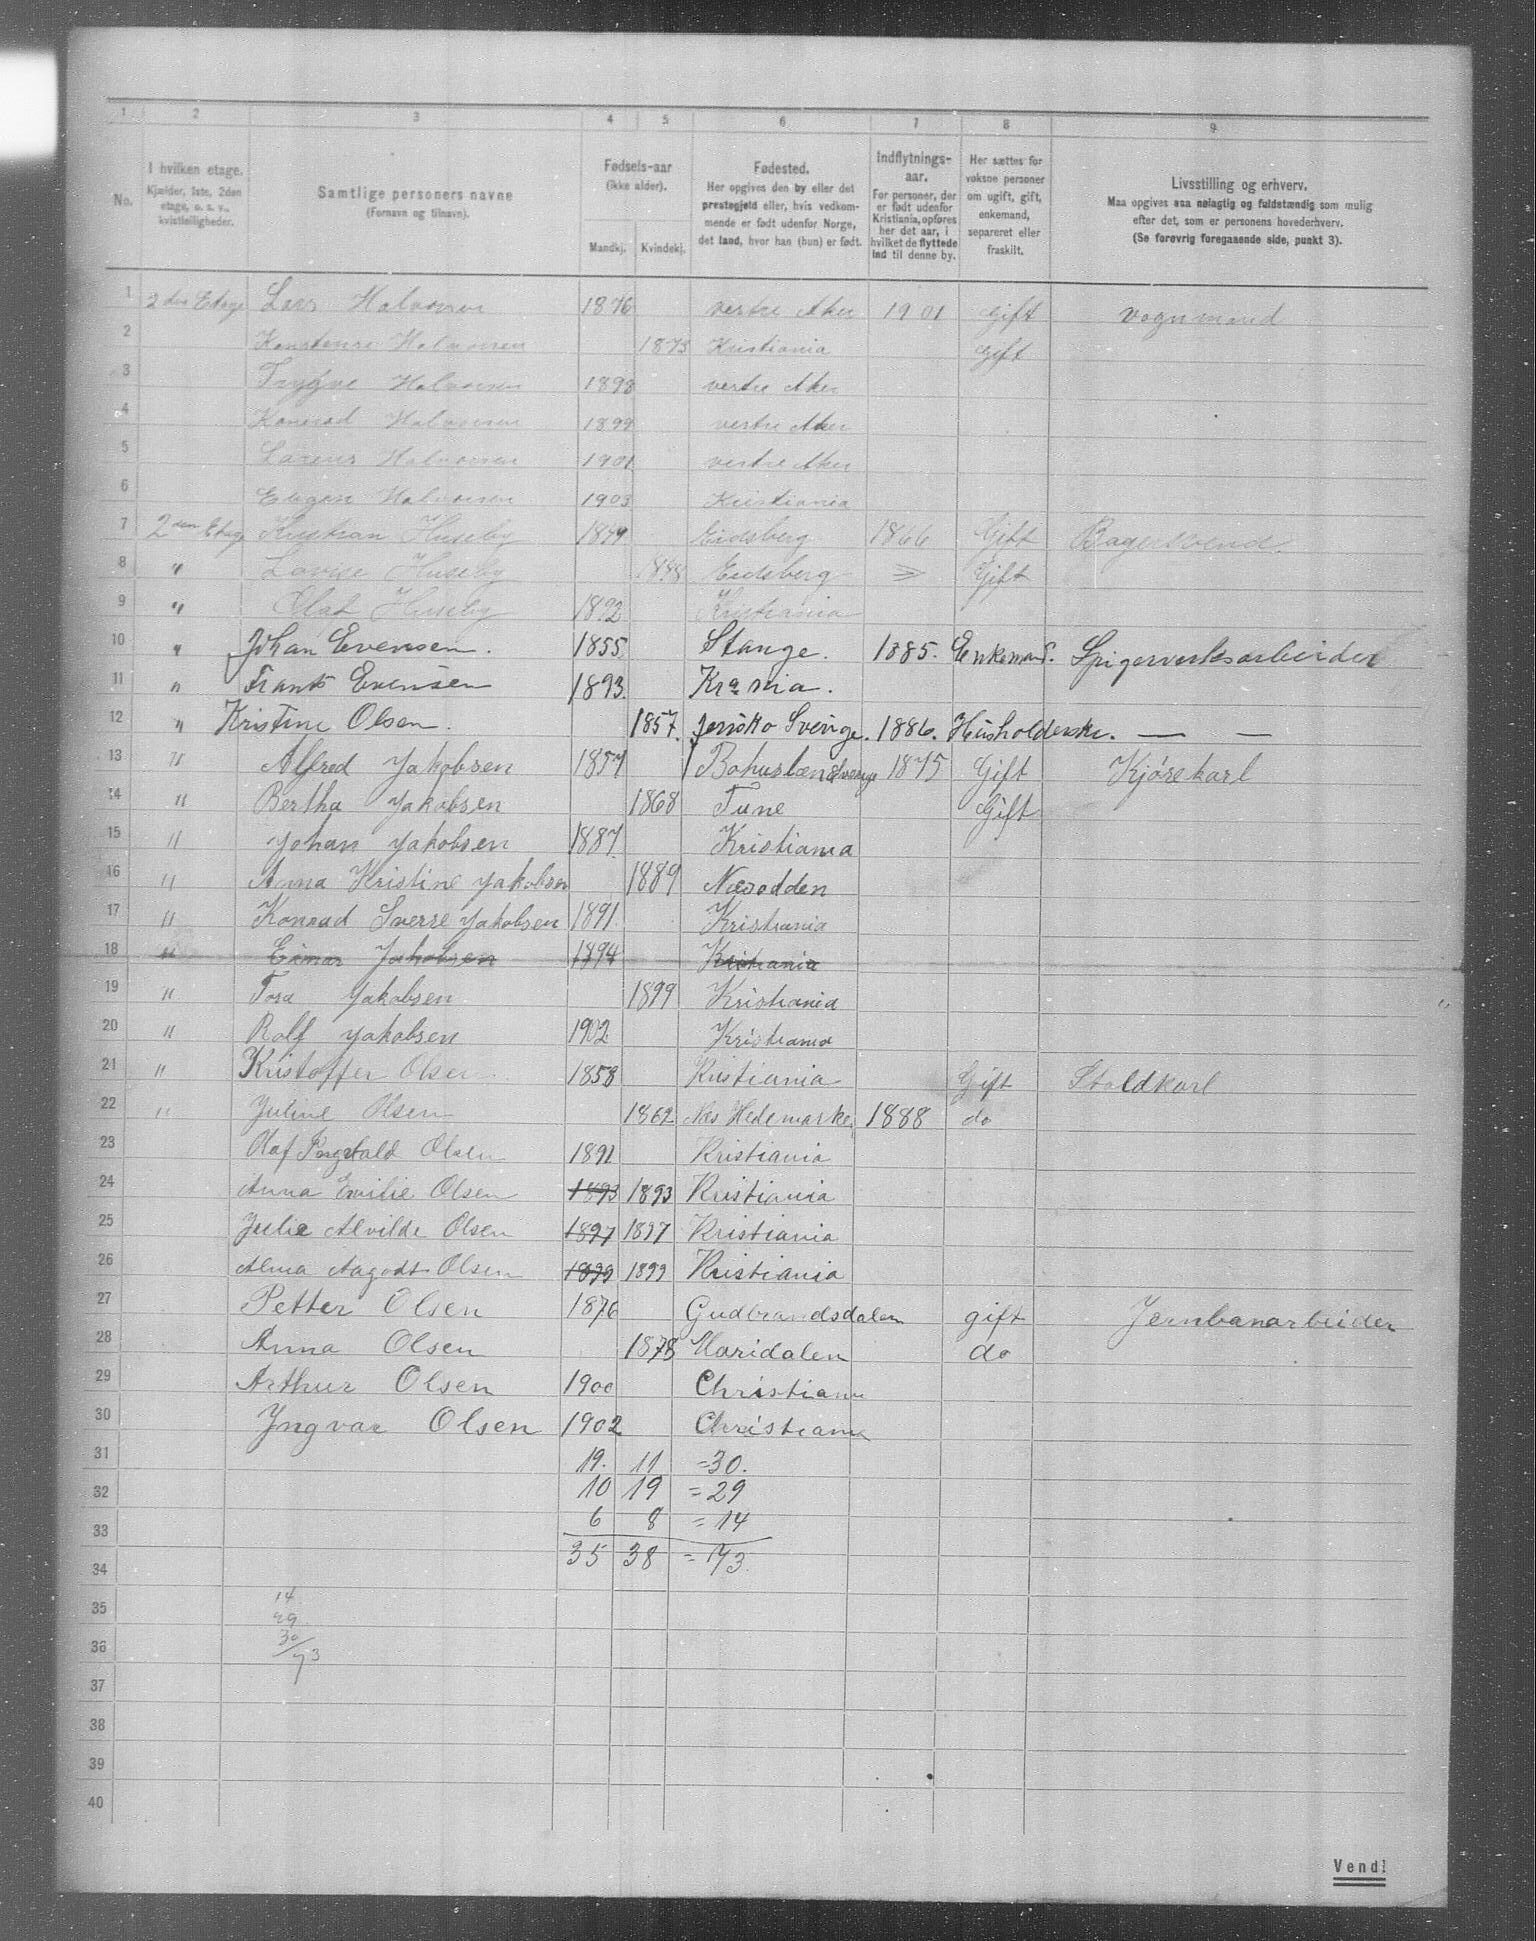 1 2 3 4 5 6 7 8 9
No.
I hvilken etage.
Kjælder, 1ste, 2den etage, o. s. v., kvistleiligheder.
Samtlige personers navne
(Fornavn og tilnavn).
Fødsels-aar
(ikke alder).
Mandkj. Kvindekj.
Fødested.
Her opgives den by eller det prestegjeld eller, hvis vedkommende er født udenfor Norge, det land, hvor han (hun) er født.
Indflytnings-aar.
For personer, der er født udenfor Kristiania, opføres her det aar, i hvilket de flyttede ind til denne by.
Her sættes for voksne personer om ugift, gift, enkemand, separeret eller fraskilt.
Livsstilling og erhverv.
Maa opgives saa nøiagtig og fuldstændig som mulig efter det, som er personens hovederhverv.
(Se forøvrig foregaaende side, punkt 3).
1 2den Etage Lars Halvorsen 1876 vestre Aker 1901 Gift vognmand
2 Konstense Halvorsen 1875 Kristiania Gift
3 Trygve Halvorsen 1898 vestre Aker
4 Konrad Halvorsen 1899 vestre Aker
5 Laurus Halvorsen 1901 vestre Aker
6 Eugen Halvorsen 1903 Kristiania
7 2den Etage Kristian Huseby 1849 Eidsberg 1866 Gift Bagersvend.
8 " Lovise Huseby 1848 Eidsberg Gift
9 " Olaf Huseby 1892 Kristiania
10 " Johan Evensen. 1855 Stange. 1885. Enkemand. Spigerverksarbeider
11 " Frants Evensen 1893. Kra nia.
12 " Kristine Olsen. 1857. Sverige. 1886. Husholderske. — —
13 " Alfred Jakobsen 1857 Bohuslæn Sverige 1875 Gift Kjørekarl
14 " Bertha Jakobsen 1868 Tune Gift
15 " Johan Jakobsen 1887 Kristiania
16 " Anna Kristine Jakobsen 1889 Næsodden
17 " Konrad Sverre Jakobsen 1891 Kristiania
18 " Einar Jakobsen 1894 Kristiania
19 " Tora Jakobsen 1899 Kristiania
20 " Rolf Jakobsen 1902 Kristiania
21 " Kristoffer Olsen 1858 Kristiania Gift Staldkarl
22 " Juline Olsen 1862 Næs Hedemarken 1888 do
23 Olaf Ingvald Olsen 1891 Kristiania
24 Anna Emilie Olsen 1893 1893 Kristiania
25 Julie Alvilde Olsen 1897 1897 Kristiania
26 Alma Aagodt Olsen 1899 1899 Kristiania
27 Petter Olsen 1876 Gudbrandsdalen gift Jernbanarbeider
28 Anna Olsen 1878 Maridalen do
29 Arthur Olsen 1900 Christiania
30 Yngvar Olsen 1902 Christiania
31 19. 11 =30.
32 10 19 = 29
33 6 8 = 14
34 35 38 = 73.
35 14
29
36 30
73
37
38
39
40
Vend!